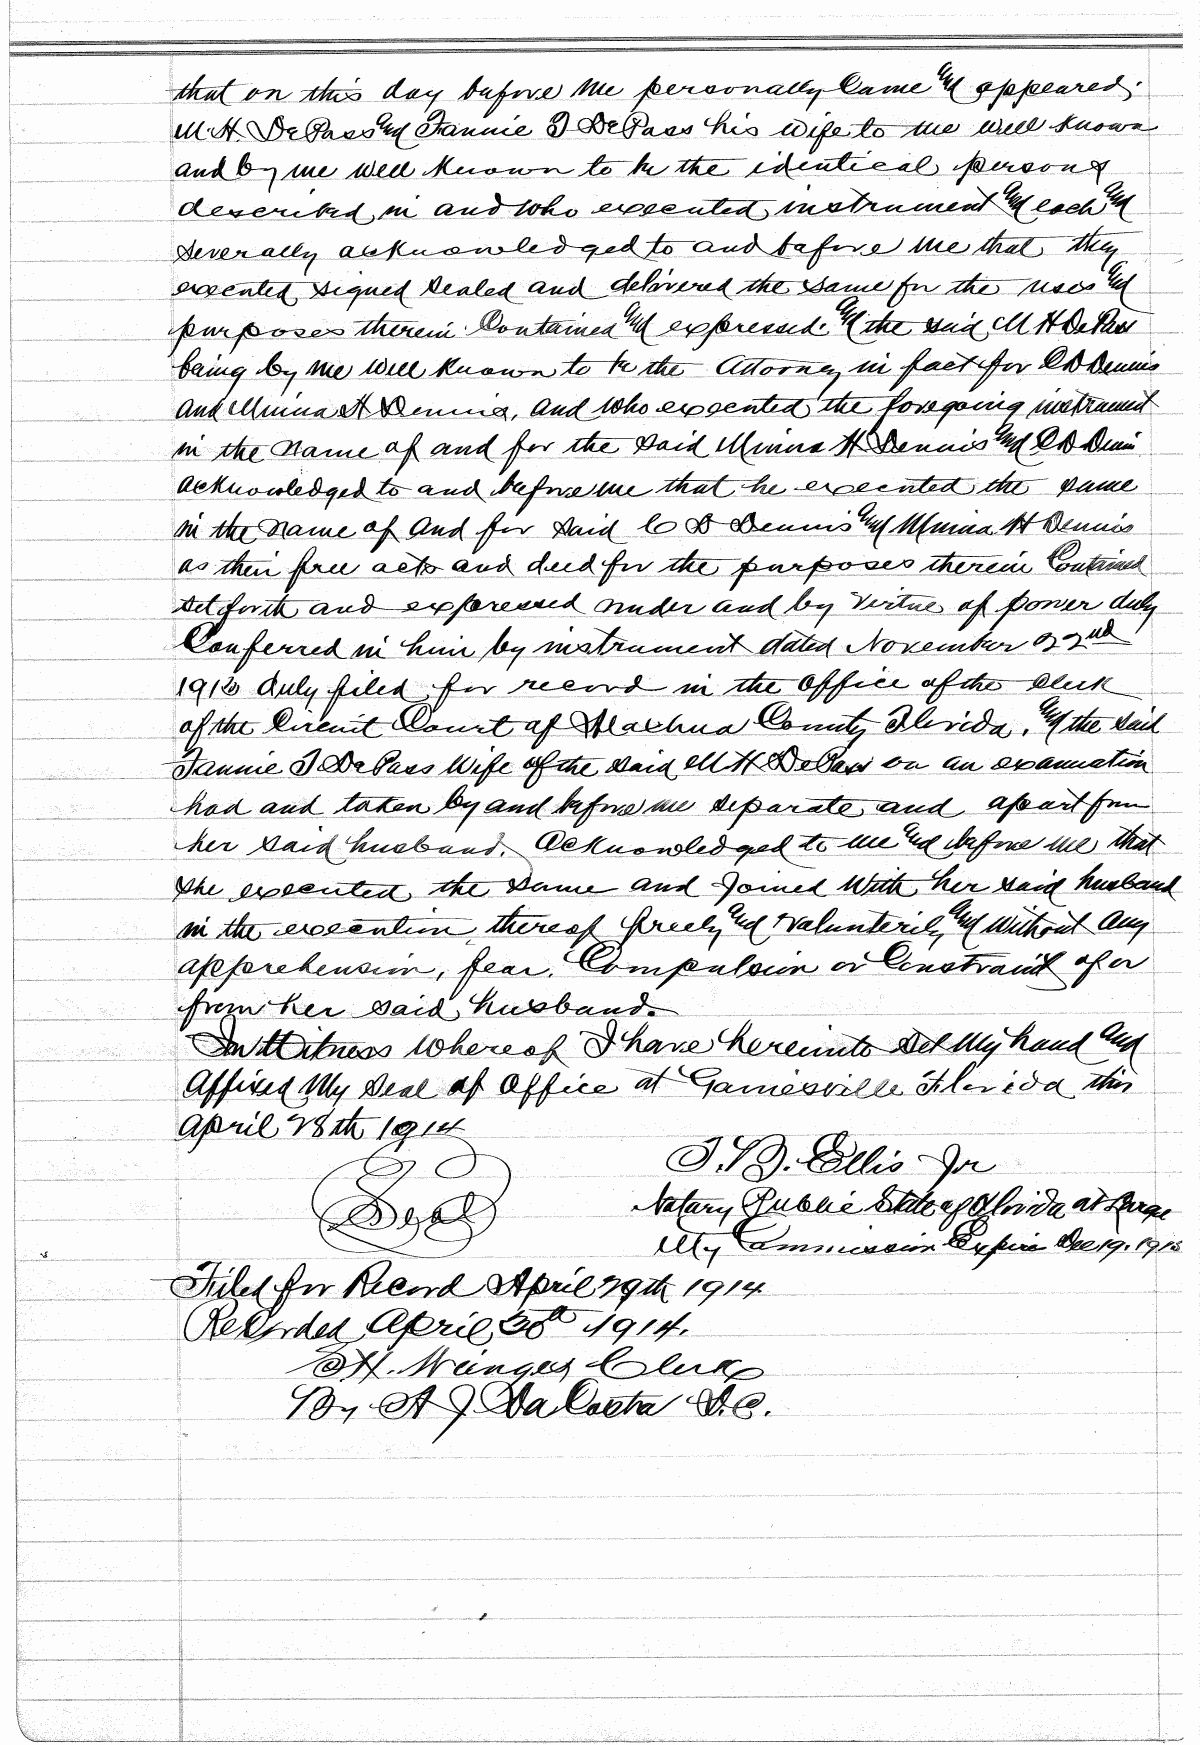 that on this day before me personally Came and appeared
M. H. DePass and Fannie I DePass his wife to me well known
and by me well known to be the identical persons
described in and who executed instrument and each and
severally acknowledged to and before me that they
executed signed sealed and delivered the same for the uses and
purposes therein Contained and expressed. and the said M H DePass
being by me well known to be the Attorney in fact for C D Dennis
and Minna H Dennis, and who executed the foregoing instrument
in the name of and for the said Minna H Dennis and C D Dennis
acknowledged to and before me that he executed the same
in the name of and for said C D Dennis and Minna H Dennis
as their free acts and deed for the purposes therein Contained
set forth and expressed under and by virtue of power duly
Conferred in him by instrument dated November 22nd
duly filed for record in the Office of the Clerk
of the Circuit Court of Alachua County Florida. and the said
Fannie I DePass Wife of the said M H DePass on an examination
had and taken by and before me separate and apart from
her said husband. Acknowledged to me and before me that
she executed the same and Joined With her said husband
in the execution thereof freely and volunterily and without any
apprehension, fear. Compulsion or Constraint of or
from her said husband.
In Witness Whereof I have hereunto set My hand and
Affixed My Seal of Office at Gainesville Florida this
April 28th 1914
T. B. Ellis Jr
Seal
Notary Public State of Florida at Large
My Commission Expire Dec 19.
Filed for Record April 29th 1914
Recorded April 30th 1914.
S. H. Wienges Clerk
By A J DaCosta D.C.